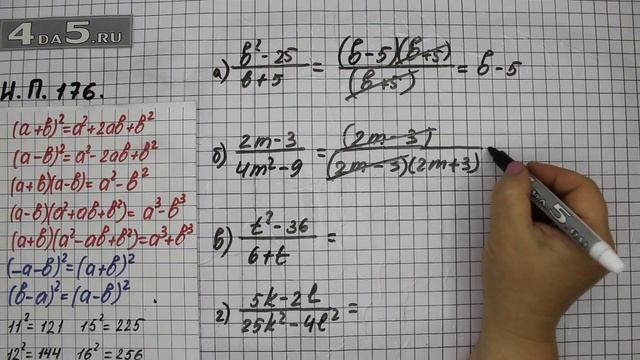 4DA5.RU
Н.П. 176.
(a+b)²=a²+2ab+b²
(a-b)²=a²-2ab+b²
(a+b)(a-b)=a²-b²
(a-b)(a²+ab+b²)=a³-b³
(a+b)(a²-ab+b²)=a³+b³
(-a-b)²=(a+b)²
(b-a)²=(a-b)²
11²=121 15²=225
12²=144 16²=256
а) (b²-25)/(b+5) = ((b-5)(b+5))/(b+5) = b-5
б) (2m-3)/(4m²-9) = (2m-3)/((2m-3)(2m+3))
в) (t²-36)/(6+t) =
г) (5k-2l)/(25k²-4l²) =
DA 5.RU